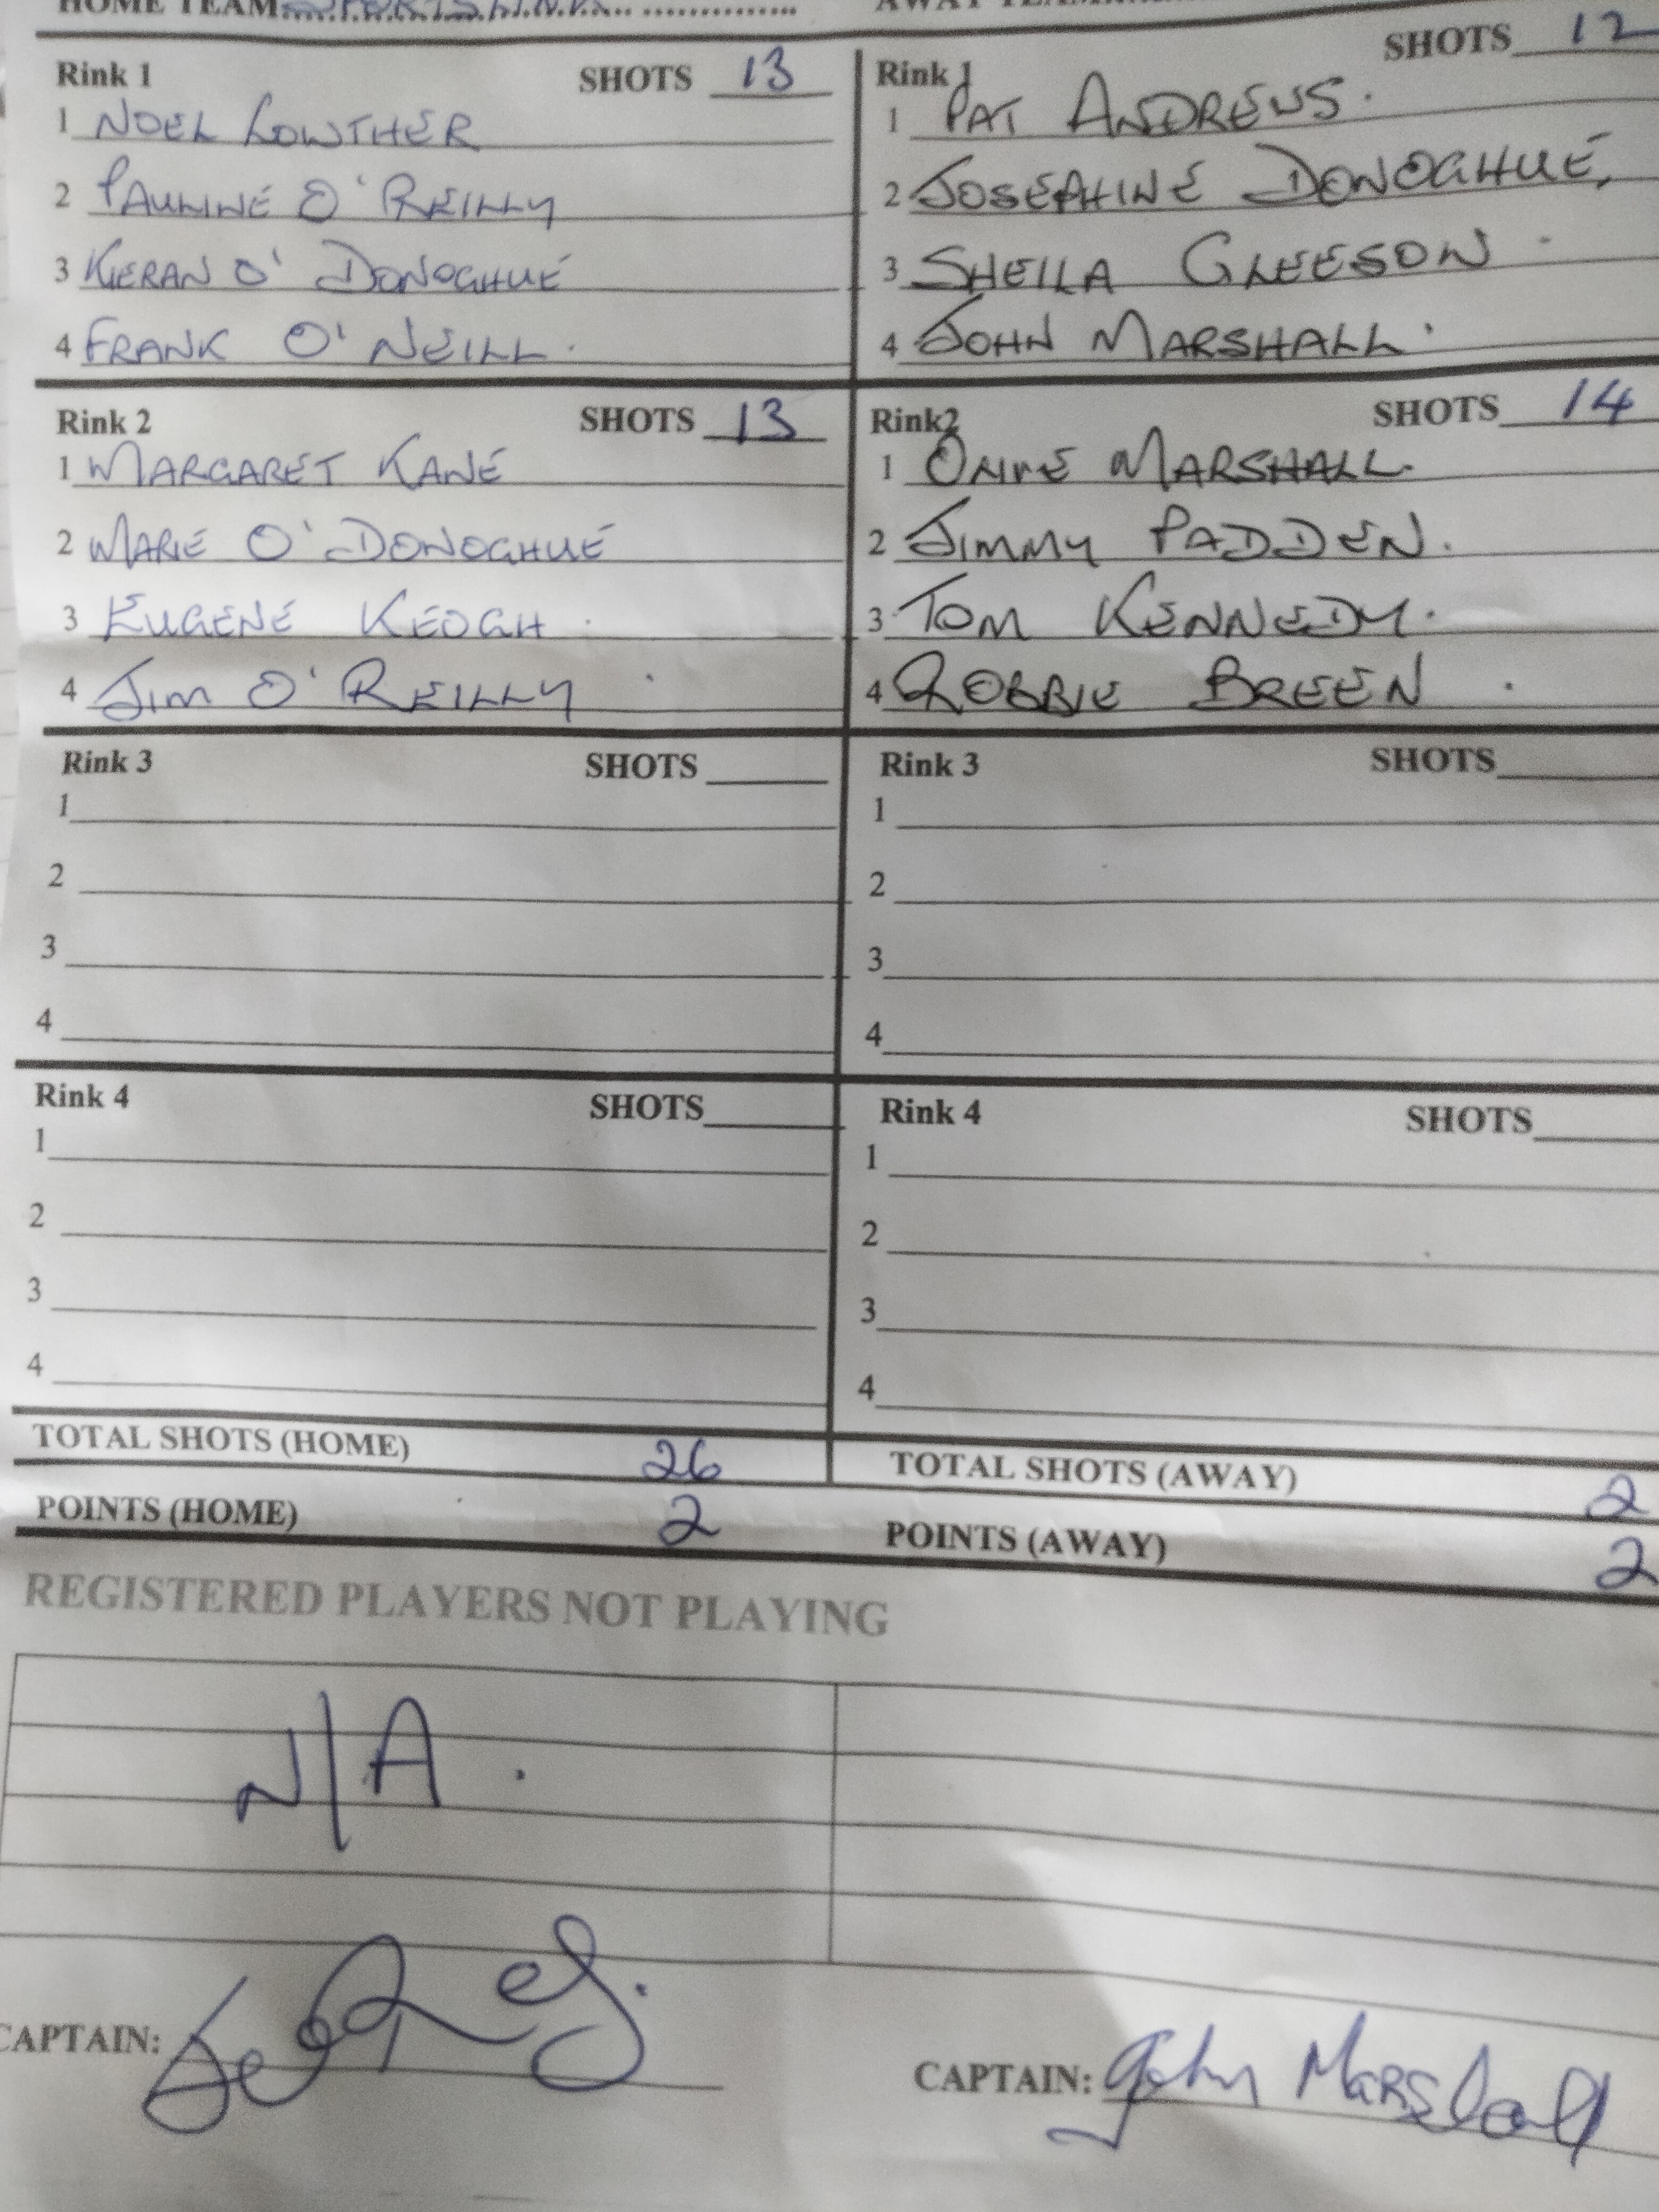 HOME TEAM
Rink 1 SHOTS 13
1 NOEL LOWTHER
2 PAULINE O'REILLY
3 KIERAN O'DONOGHUE
4 FRANK O'NEILL.
SHOTS 12
Rink 1
1 PAT ANDREWS.
2 JOSEPHINE DONOGHUE,
3 SHEILA GLEESON
4 JOHN MARSHALL.
Rink 2 SHOTS 13
1 MARGARET KANE
2 MARIE O'DONOGHUE
3 EUGENE KEOGH.
4 JIM O'REILLY
Rink2 SHOTS 14
1 MARSHALL.
2 JIMMY PADDEN.
3 TOM KENNEDY.
4 ROBBIE BREEN.
Rink 3 SHOTS
1
2
3
4
Rink 3 SHOTS
1
2
3
4
Rink 4 SHOTS
1
2
3
4
Rink 4 SHOTS
1
2
3
4
TOTAL SHOTS (HOME) 26
TOTAL SHOTS (AWAY) 2
POINTS (HOME) 2
POINTS (AWAY) 2
REGISTERED PLAYERS NOT PLAYING
N/A.
CAPTAIN:
CAPTAIN: John Marshall